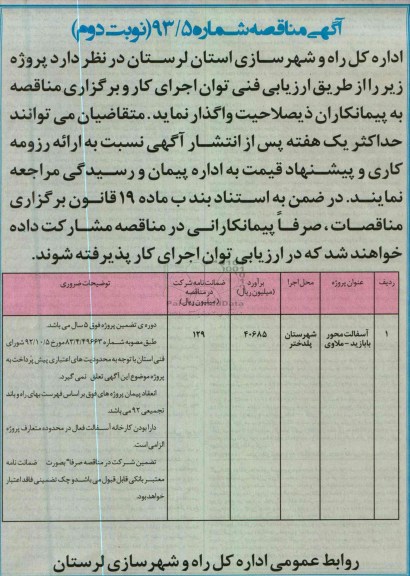 آگهی مناقصه شماره ۹۳/۵ (نوبت دوم)
اداره کل راه و شهرسازی استان لرستان در نظر دارد پروژه
زیر را از طریق ارزیابی فنی توان اجرای کار و برگزاری مناقصه
به پیمانکاران ذیصلاحیت واگذار نماید. متقاضیان می توانند
حداکثر یک هفته پس از انتشار آگهی نسبت به ارائه رزومه
کاری و پیشنهاد قیمت به اداره پیمان و رسیدگی مراجعه
نمایند. در ضمن به استناد بند ب ماده ۱۹ قانون برگزاری
مناقصات، صرفاً پیمانکارانی در مناقصه مشارکت داده
خواهند شد که در ارزیابی توان اجرای کار پذیرفته شوند.
ردیف
عنوان پروژه
محل اجرا
برآورد
(میلیون ریال)
ضمانت نامه شرکت
در مناقصه
(میلیون ریال)
توضیحات ضروری
۱
آسفالت محور
بابازید - ملاوی
شهرستان
پلدختر
۴۰۶۸۵
۱۲۹
دوره ی تضمین پروژه فوق ۵ سال می باشد.
طبق مصوبه شماره ۸۲/۴/۴۹۶۶۳ مورخ ۹۲/۱۰/۵ شورای
فنی استان با توجه به محدودیت های اعتباری پیش پرداخت به
پروژه موضوع این آگهی تعلق نمی گیرد.
انعقاد پیمان پروژه های فوق بر اساس فهرست بهای راه و باند
تجمیعی ۹۲ می باشد.
دارا بودن کارخانه آسفالت فعال در محدوده متعارف پروژه
الزامی است.
تضمین شرکت در مناقصه صرفاً بصورت ضمانت نامه
معتبر بانکی قابل قبول می باشد و چک تضمینی فاقد اعتبار
خواهد بود.
روابط عمومی اداره کل راه و شهرسازی لرستان